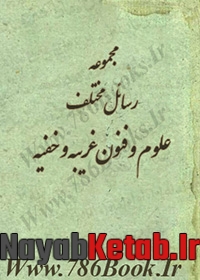 مجموعه
رسائل مختلف
علوم و فنون غریبه و خفیه
NayabKetab.Ir
www.786Book.Ir